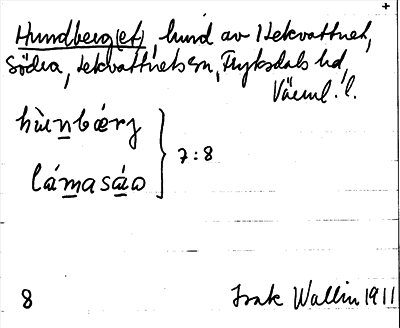 +
Hundberg(et), hind av 1 Lekvattnet,
Södra, Lekvattnets sn, Fryksdals hd,
Värml. l.
hùnbǽrj
lámasáo } 7:8
8 Isak Wallin 1911